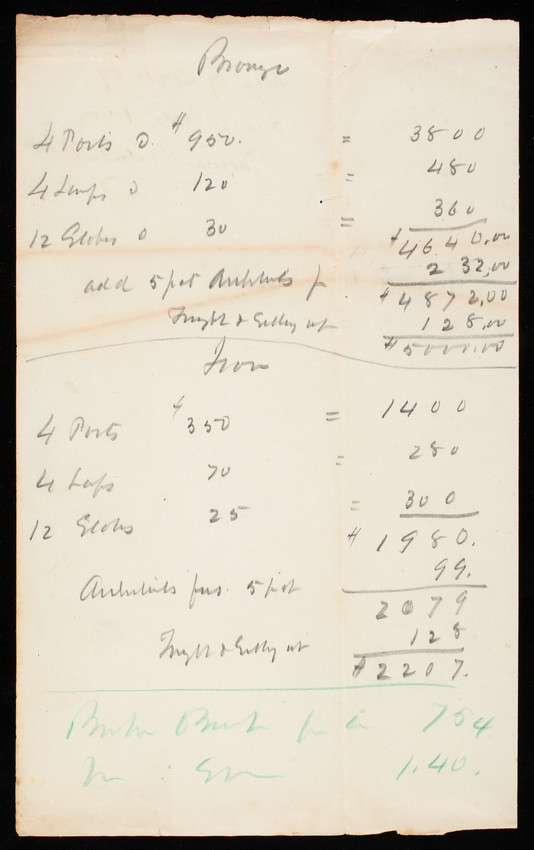 Bronze
4 Posts @ $950. = 3800
4 Lamps @ 120 = 480
12 Globes @ 30 = 360
$4640.00
add 5 pct Architects 232,00
$4872,00
Freight & Setting up 128,00
$5000.00
Iron
4 Posts $350 = 1400
4 Lamps 70 = 280
12 Globes 25 = 300
$1980.
Architects 5 pct 99.
2079
Freight & Setting up 128
$2207.
754
1.40.